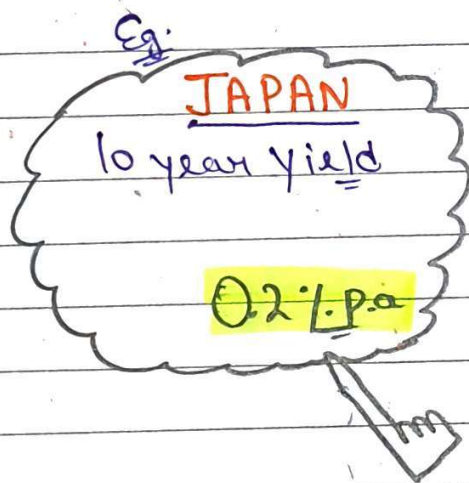 Eg.
JAPAN
10 year yield
0.2%.p.a